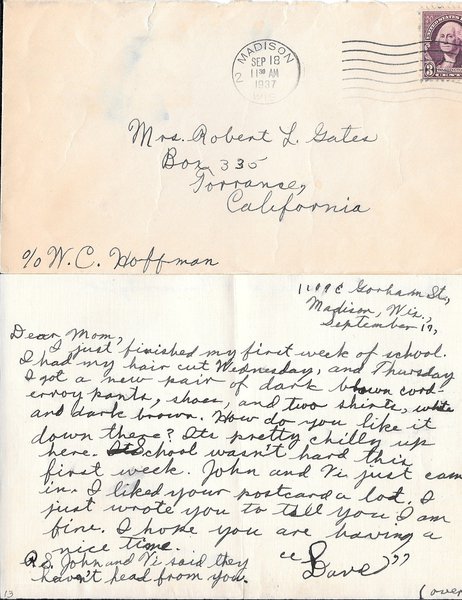 MADISON
SEP 18
11 30 AM
1937
WIS.
2
3
Mrs. Robert L. Gates
Box 335
Torranse,
California
c/o W. C. Hoffman
1109 E Gorham St.,
Madison, Wis.,
September 17,
Dear Mom,
I just finished my first week of school.
I had my hair cut Wednesday, and Thursday
I got a new pair of dark brown cord-
erroy pants, shoes, and two shirts, white
and dark brown. How do you like it
down there? Its pretty chilly up
here. School wasn't hard this
first week. John and Vi just came
in. I liked your postcard a lot. I
just wrote you to tell you I am
fine. I hope you are having a
nice time.
"Dave"
P.S. John and Vi said they
haven't head from you.
(over
13